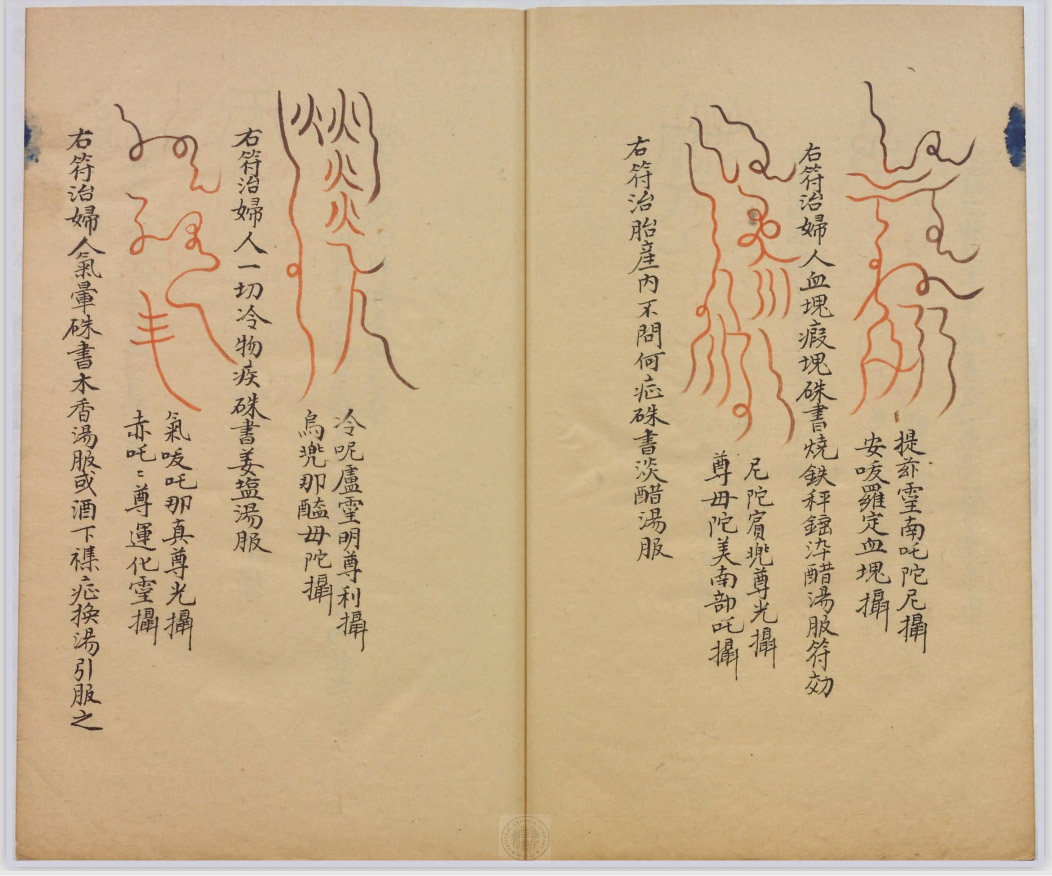 提𦬇䨩南吒陀尼攝
安㖿羅定血塊攝
右符治婦人血塊瘕塊硃書燒鉄秤錘淬醋湯服符効
尼陀賔兠尊光攝
尊毋陀美南部吒攝
右符治胎産内不問何症硃書淡醋湯服
冷呢盧䨩明尊利攝
烏兠那醯毋陀攝
右符治婦人一切冷物疾硃書姜塩湯服
氣㖿吒那真尊光攝
赤吒〻尊運化䨩攝
右符治婦人氣暈硃書木香湯服或酒下襍症換湯引服之